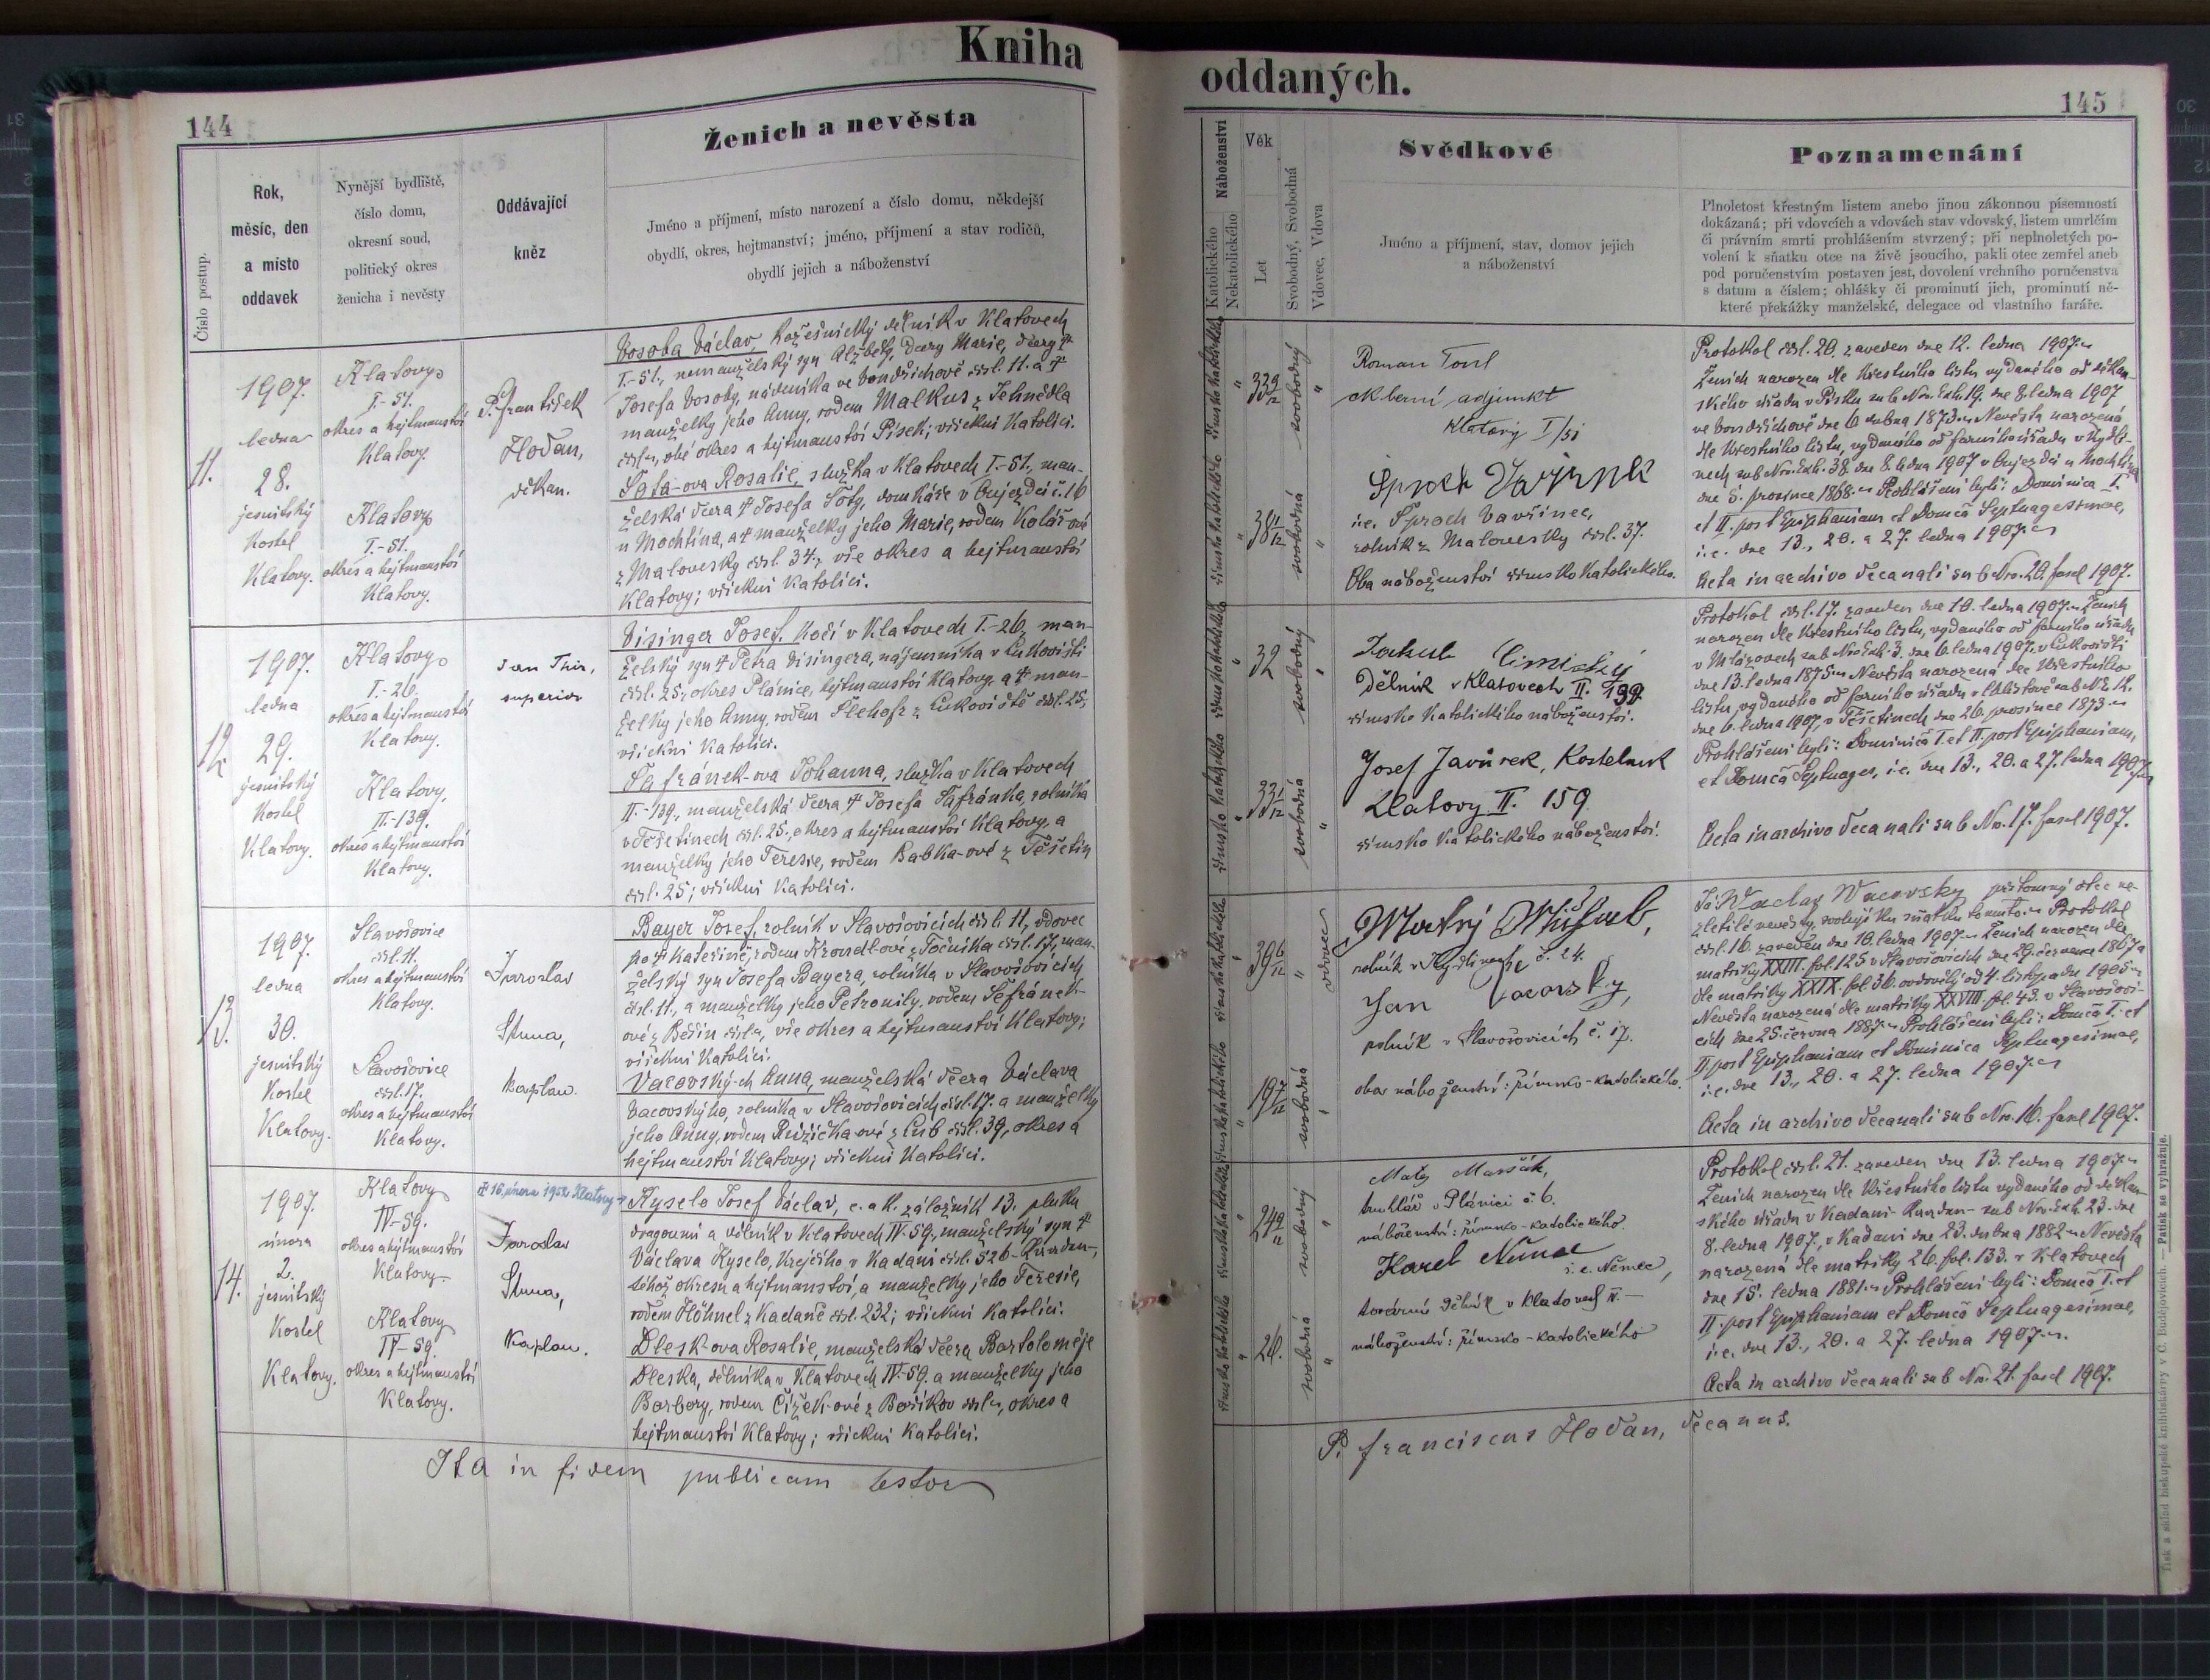 Kniha
144
Číslo postup.
Rok,
měsíc, den
a místo
oddavek
Nynější bydliště,
číslo domu,
okresní soud,
politický okres
ženicha i nevěsty
Oddávající
kněz
Ženich a nevěsta
Jméno a příjmení, místo narození a číslo domu, někdejší
obydlí, okres, hejtmanství; jméno, příjmení a stav rodičů,
obydlí jejich a náboženství
11.
1907.
ledna
28.
jesuitský
kostel
Klatovy.
Klatovy
I.-51.
okres a hejtmanství
Klatovy.
Klatovy
I.-51.
okres a hejtmanství
Klatovy.
P. František
Hoďan,
děkan.
Vosoba Václav, kožešnický dělník v Klatovech
I.-51., nemanželský syn Alžběty, dcery Marie, dcery †
Josefa Vosoby, nádeníka ve Vondřichově čísl. 11. a †
manželky jeho Anny, rodem Malkus z Tehnědla
čísl., obé okres a hejtmanství Písek; všickni katolíci.
Šofa-ova Rosalie, služka v Klatovech I.-51., man-
želská dcera † Josefa Šofy, domkáře v Oujezdci č. 16
u Mochtína, a † manželky jeho Marie, rodem Kolářové
z Malovesky čísl. 34., vše okres a hejtmanství
Klatovy; všickni katolíci.
12.
1907.
ledna
29.
jesuitský
kostel
Klatovy.
Klatovy
I.-26.
okres a hejtmanství
Klatovy.
Klatovy,
II.-139.
okres a hejtmanství
Klatovy.
Jan Thir,
superior
Visinger Josef, kočí v Klatovech I.-26, man-
želský syn † Petra Visingera, nájemníka v Lukovišti
čísl. 25., okres Plánice, hejtmanství Klatovy, a † man-
želky jeho Anny, rodem Šlehofr z Lukoviště čísl. 25;
všickni katolíci.
Šafránek-ova Johanna, služka v Klatovech
II.-139., manželská dcera † Josefa Šafránka, rolníka
v Těšetinech čísl. 25., okres a hejtmanství Klatovy, a
manželky jeho Teresie, rodem Babka-ové z Těšetin
čísl. 25; všickni katolíci.
13.
1907
ledna
30.
jesuitský
kostel
Klatovy.
Slavošovice
čísl. 11.
okres a hejtmanství
Klatovy.
Slavošovice
čísl. 17.
okres a hejtmanství
Klatovy.
Jaroslav
kaplan.
Bayer Josef, rolník v Slavošovicích čísl. 11, vdovec
po † Kateřině, rodem Krondlové z Točníka čísl. 17, man-
želský syn Josefa Bayera, rolníka v Slavošovicích
čísl. 11., a manželky jeho Petronily, rodem Šefránek-
ové z Běšin čísl., vše okres a hejtmanství Klatovy;
všickni katolíci.
Vacovský-ch Anna, manželská dcera Václava
Vacovského, rolníka v Slavošovicích čísl. 17. a manželky
jeho Anny, rodem Růžička-ové z Lub čísl. 39, okres a
hejtmanství Klatovy; všickni katolíci.
14.
1907.
února
2.
jesuitský
kostel
Klatovy.
Klatovy
IV-59.
okres a hejtmanství
Klatovy
Klatovy
IV-59.
okres a hejtmanství
Klatovy.
† 16. února 1952 Klatovy
Jaroslav
kaplan.
Kyselo Josef Václav, c. a k. záložník 13. pluku
dragounů a dělník v Klatovech IV-59., manželský syn †
Václava Kyselo, krejčího v Kadani čísl. 526-Kaaden-,
téhož okresu a hejtmanství, a manželky jeho Teresie,
rodem Höhnel z Kadaně čísl. 232; všickni katolíci.
Dlesk-ova Rosalie, manželská dcera Bartoloměje
Dleska, dělníka v Klatovech IV-59. a manželky jeho
Barbory, rodem Čížek-ové z Bořikov čísl., okres a
hejtmanství Klatovy; všickni katolíci.
Ita in fidem publicam testor
oddaných.
145
Náboženství
Katolického
Nekatolického
Věk
Let
Svobodný, Svobodná
Vdovec, Vdova
Svědkové
Jméno a příjmení, stav, domov jejich
a náboženství
Poznamenání
Plnoletost křestným listem anebo jinou zákonnou písemností
dokázaná; při vdovcích a vdovách stav vdovský, listem umrlčím
či právním smrti prohlášením stvrzený; při neplnoletých po-
volení k sňatku otce na živě jsoucího, pakli otec zemřel aneb
pod poručenstvím postaven jest, dovolení vrchního poručenstva
s datum a číslem; ohlášky či prominutí jich, prominutí ně-
které překážky manželské, delegace od vlastního faráře.
římsko katolického
33 9/12
svobodný
římsko katolického
38 1/12
svobodná
Roman Toul
berní adjunkt
Klatovy I/51
i.e. Šproch Vavřinec,
rolník z Malovesky čísl. 37.
Oba náboženství římsko katolického.
Protokol čísl. 20. zaveden dne 12. ledna 1907.
Ženich narozen dle křestního listu vydaného od děkan-
ského úřadu v Písku sub Nro. Exh. 19. dne 8. ledna 1907
ve Vondřichově dne 6. dubna 1873. Nevěsta narozená
dle křestního listu, vydaného od farního úřadu v Kydli-
nech sub Nro. Exh. 38. dne 8. ledna 1907 v Oujezdci u Mochtína
dne 5. prosince 1868. Prohlášeni byli: Dominica I.
et II. post Epiphaniam et Domca Septuagesimae,
i.e. dne 13., 20. a 27. ledna 1907.
Acta in archivo decanali sub Nro. 20. fascl 1907.
římsko katolického
32
svobodný
římsko katolického
33 1/12
svobodná
Jakub
Dělník v Klatovech II. 199
římsko katolického náboženství.
Josef Javůrek, Kostelník
Klatovy II. 159
římsko katolického náboženství.
Protokol čísl. 17. zaveden dne 10. ledna 1907. Ženich
narozen dle křestního listu, vydaného od farního úřadu
v Mlázovech sub Nro Exh. 3. dne 6. ledna 1907. v Lukovišti
dne 13. ledna 1875. Nevěsta narozená dle křestního
listu, vydaného od farního úřadu v Chlistově sub N.E. 12.
dne 6. ledna 1907, v Těšetinech dne 26. prosince 1873.
Prohlášeni byli: Dominica I. et II. post Epiphaniam,
et Domca Septuages, i.e. dne 13., 20. a 27. ledna 1907.
Acta in archivo decanali sub No. 17. fascl 1907.
římsko katolického
39 6/12
vdovec
římsko katolického
19 7/12
svobodná
Matěj
rolník v Kydlinech č. 24.
Jan Vacovský,
rolník v Slavošovicích č. 17.
oba náboženství: římsko-katolického.
Já Waclav Wacovsky přítomný otec ne-
zletilé nevěsty, svoluji ku sňatku tomuto. Protokol
čísl. 16. zaveden dne 10. ledna 1907. Ženich narozen dle
matriky XXIII. fol. 125 v Slavošovicích dne 29. července 1867 a
dle matriky XXIX. fol. 36. ovdovělý od 4. listopadu 1905.
Nevěsta narozená dle matriky XXVIII. fol. 43. v Slavošovi-
cích dne 25. června 1887. Prohlášeni byli: Domca I. et
II. post Epiphaniam et Dominica Septuagesimae,
i.e. dne 13., 20. a 27. ledna 1907.
Acta in archivo decanali sub Nro. 16. fascl 1907.
římsko katolického
24 9/12
svobodný
římsko katolického
26.
svobodná
Matěj Maršák,
truhlář v Plánici č. 6.
náboženství: římsko-katolického.
Karel Němec
i.e. Němec,
tovární dělník v Klatovech IV. —
náboženství: římsko-katolického
Protokol čísl. 21. zaveden dne 13. ledna 1907.
Ženich narozen dle křestního listu vydaného od děkan-
ského úřadu v Kadani-Kaaden- sub Nro. Exh. 23. dne
8. ledna 1907., v Kadani dne 23. dubna 1882. Nevěsta
narozená dle matriky 26. fol. 133. v Klatovech
dne 15. ledna 1881. Prohlášeni byli: Domca I. et
II. post Epiphaniam et Domca Septuagesimae,
i.e. dne 13., 20. a 27. ledna 1907.
Acta in archivo decanali sub Nro. 21. fascl 1907.
P. Franciscus Hoďan, decanus.
Tisk a sklad biskupské knihtiskárny v Č. Budějovicích. — Patisk se vyhražuje.